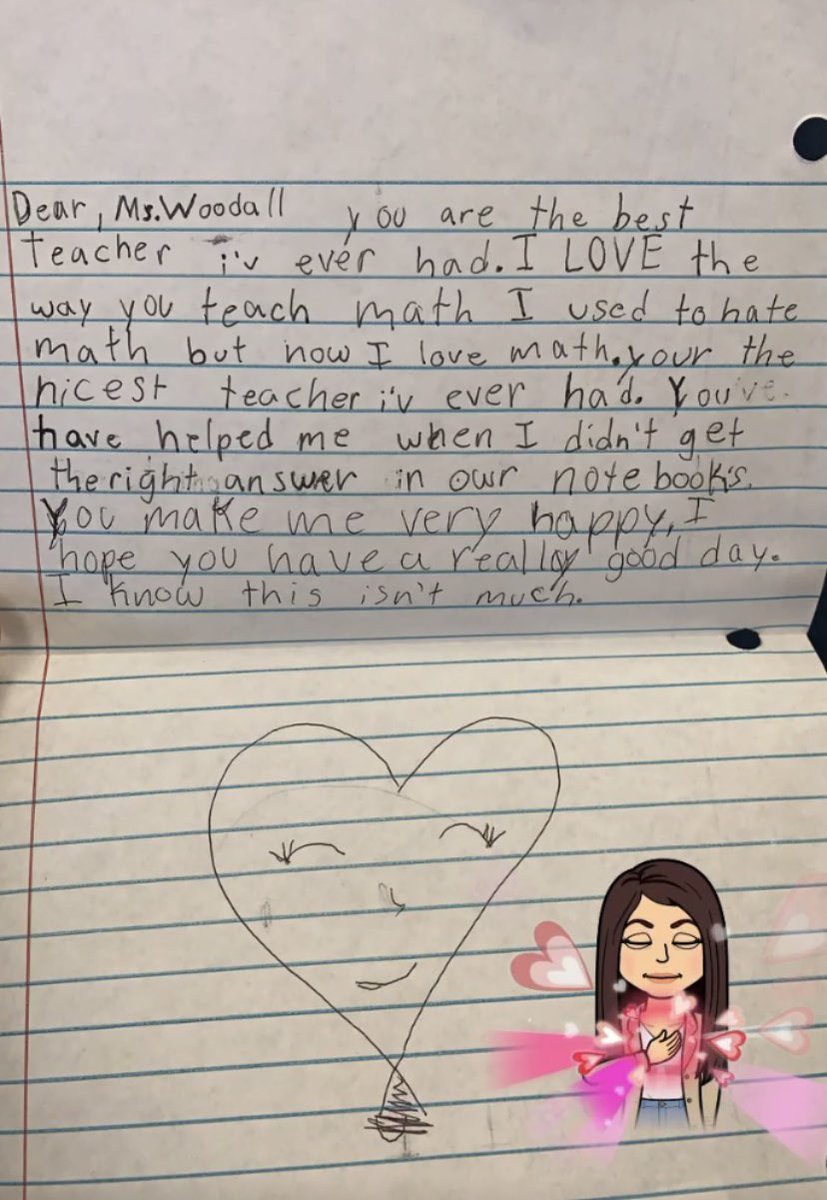 Dear, Ms.Woodall you are the best
teacher i'v ever had. I LOVE the
way you teach math I used to hate
math but now I love math. your the
nicest teacher i'v ever had. You've
have helped me when I didn't get
the right answer in owr notebook's.
You make me very happy, I
hope you have a really good day.
I know this isn't much.